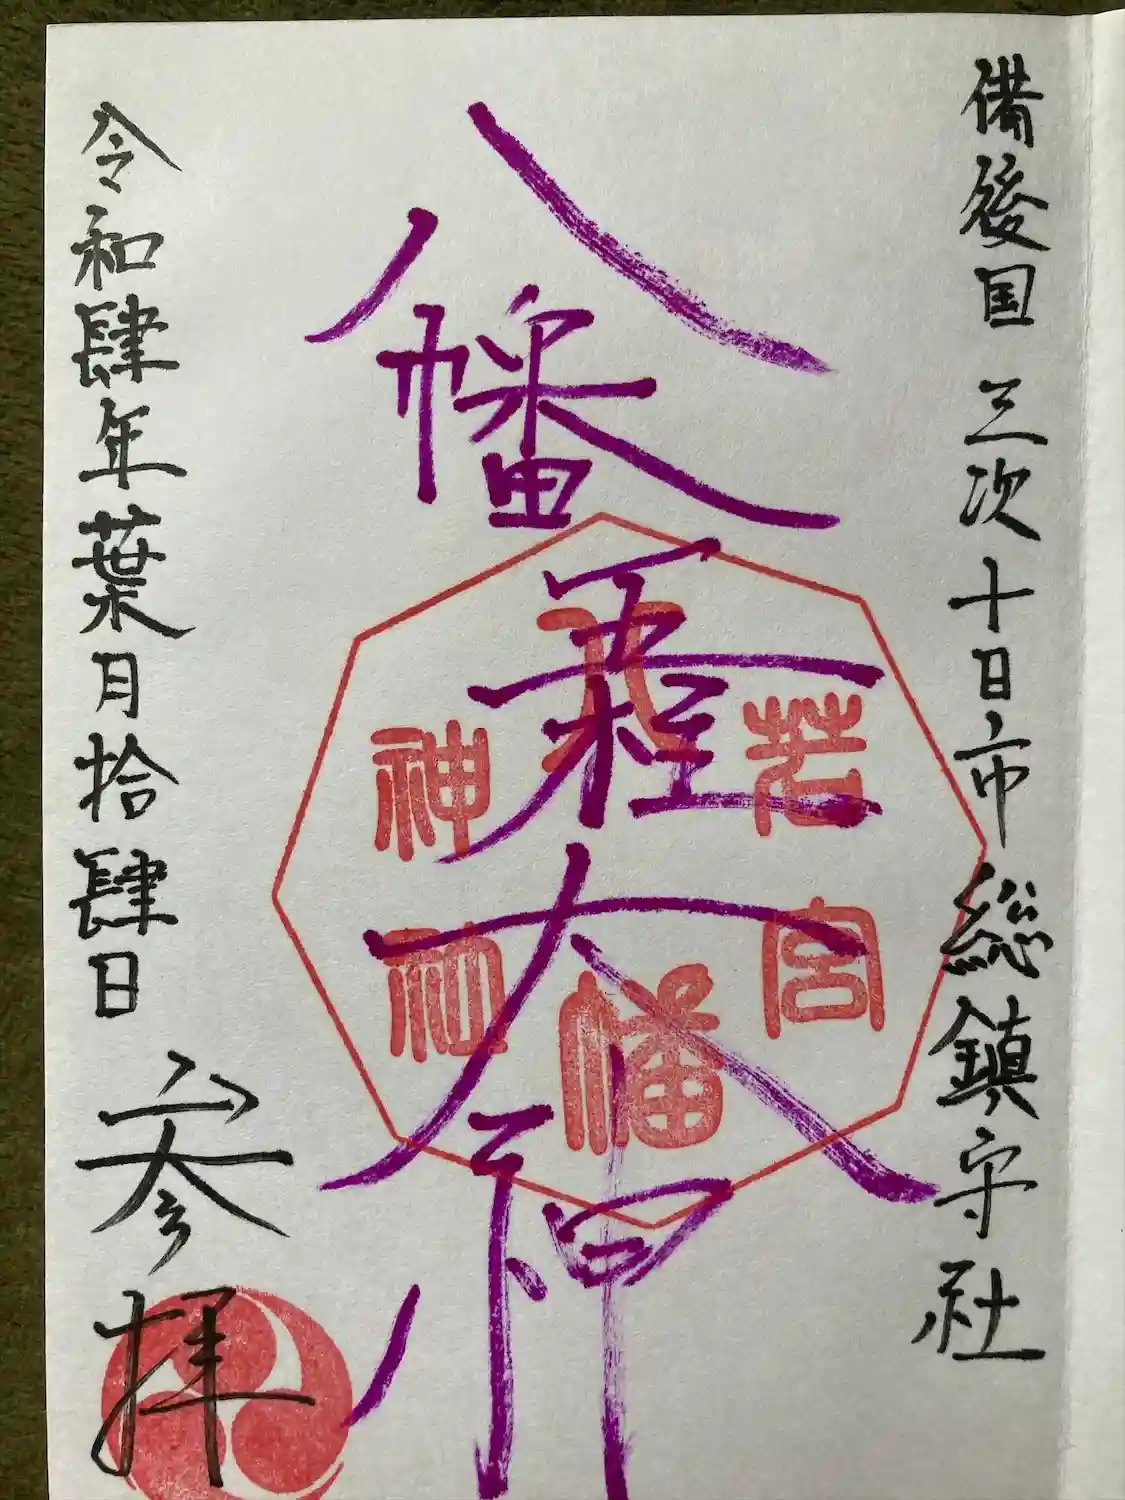 備後国 三次十日市総鎮守社
八幡大神
若宮
八幡
神社
令和肆年葉月拾肆日 参拝